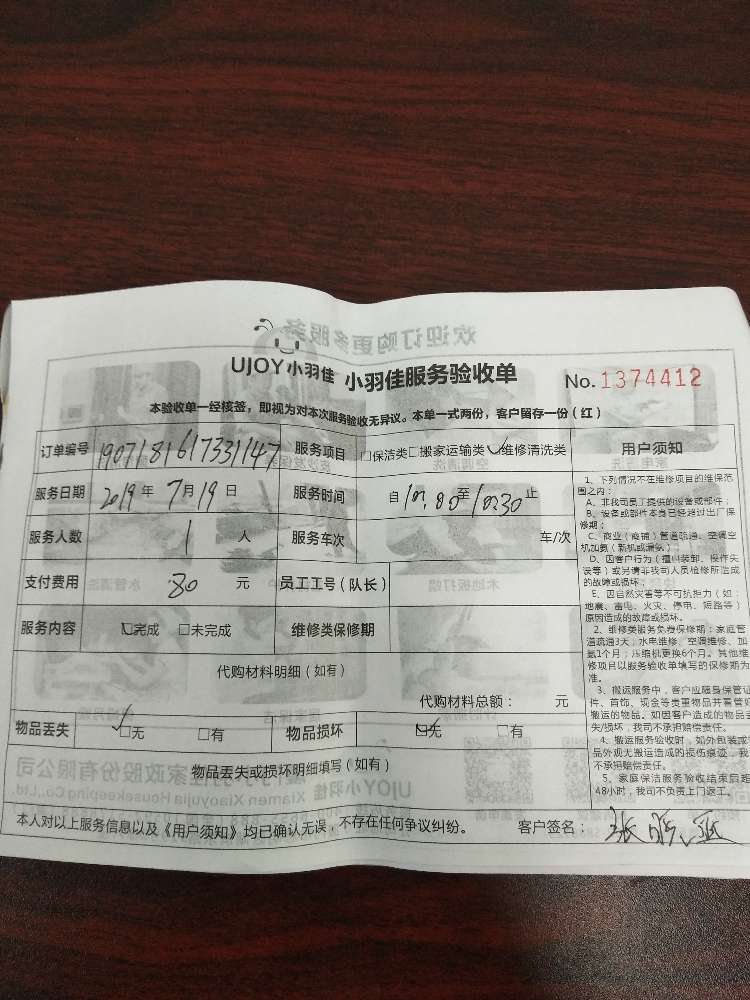 UJOY小羽佳 小羽佳服务验收单 No. 1374412
本验收单一经核签，即视为对本次服务验收无异议。本单一式两份，客户留存一份（红）
订单编号 190718161733 1147 服务项目 □保洁类□搬家运输类☑维修清洗类 用户须知
服务日期 2019年7月19日 服务时间 自 10:00 至 10:30 止
服务人数 1 人 服务车次 车/次
支付费用 80 元 员工工号（队长）
服务内容 ☑完成 □未完成 维修类保修期
代购材料明细（如有）
代购材料总额： 元
物品丢失 ☑无 □有 物品损坏 ☑无 □有
物品丢失或损坏明细填写（如有）
本人对以上服务信息以及《用户须知》均已确认无误，不存在任何争议纠纷。 客户签名：
1、下列情况不在维修项目的维保范
围之内：
A、非我司员工提供的设备或部件；
B、设备或部件本身已经超过出厂保
修期；
C、商业（商铺）管道疏通、空调空
机加氨（新机或漏氨）
D、因客户行为（擅自装卸、操作失
误等）或另请非我司人员检修所造成
的故障或损坏；
E、因自然灾害等不可抗拒力（如：
地震、雷电、火灾、停电、短路等）
原因造成的故障或损坏。
2、维修类服务免费保修期：家庭管
道疏通3天；水电维修、空调维修、加
氨1个月；压缩机更换6个月。其他维
修项目以服务验收单填写的保修期为
准。
3、搬运服务中，客户应随身保管证
件、首饰、现金等贵重物品并看管好
搬运的物品。如因客户造成的物品丢
失/损坏，我司不承担赔偿责任。
4、搬运服务验收时，如外包装或
品外观无搬运造成的损伤痕迹，我
不承担赔偿责任。
5、家庭保洁服务验收结束后超
48小时，我司不负责上门返工。
欢迎订购更多服务
UJOY小羽佳
家政股份有限公司
Xiamen Xiaoyujia Housekeeping Co., Ltd.